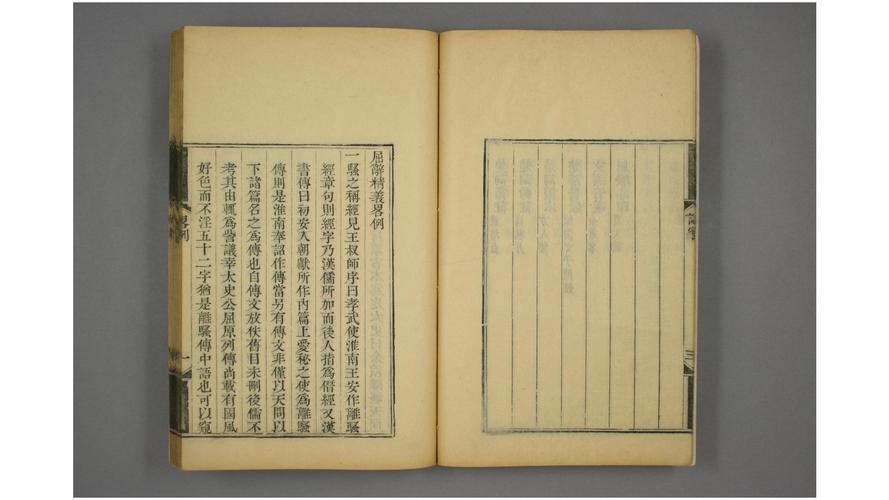 三
屈辭精義畧例
一騷之稱經見王叔師序曰孝武使淮南王安作離騷
經章句則經字乃漢儒所加而後人指爲僭經又漢
書傳曰初安入朝獻所作內篇上愛秘之使爲離騷
傳則是淮南奉詔作傳當另有傳文非僅以天問以
下諸篇名之爲傳也自傳文放佚舊目未刪後儒不
考其由輒爲訾議幸太史公屈原列傳尚載有國風
好色而不淫五十二字猶是離騷傳中語也可以窺
畧例
一